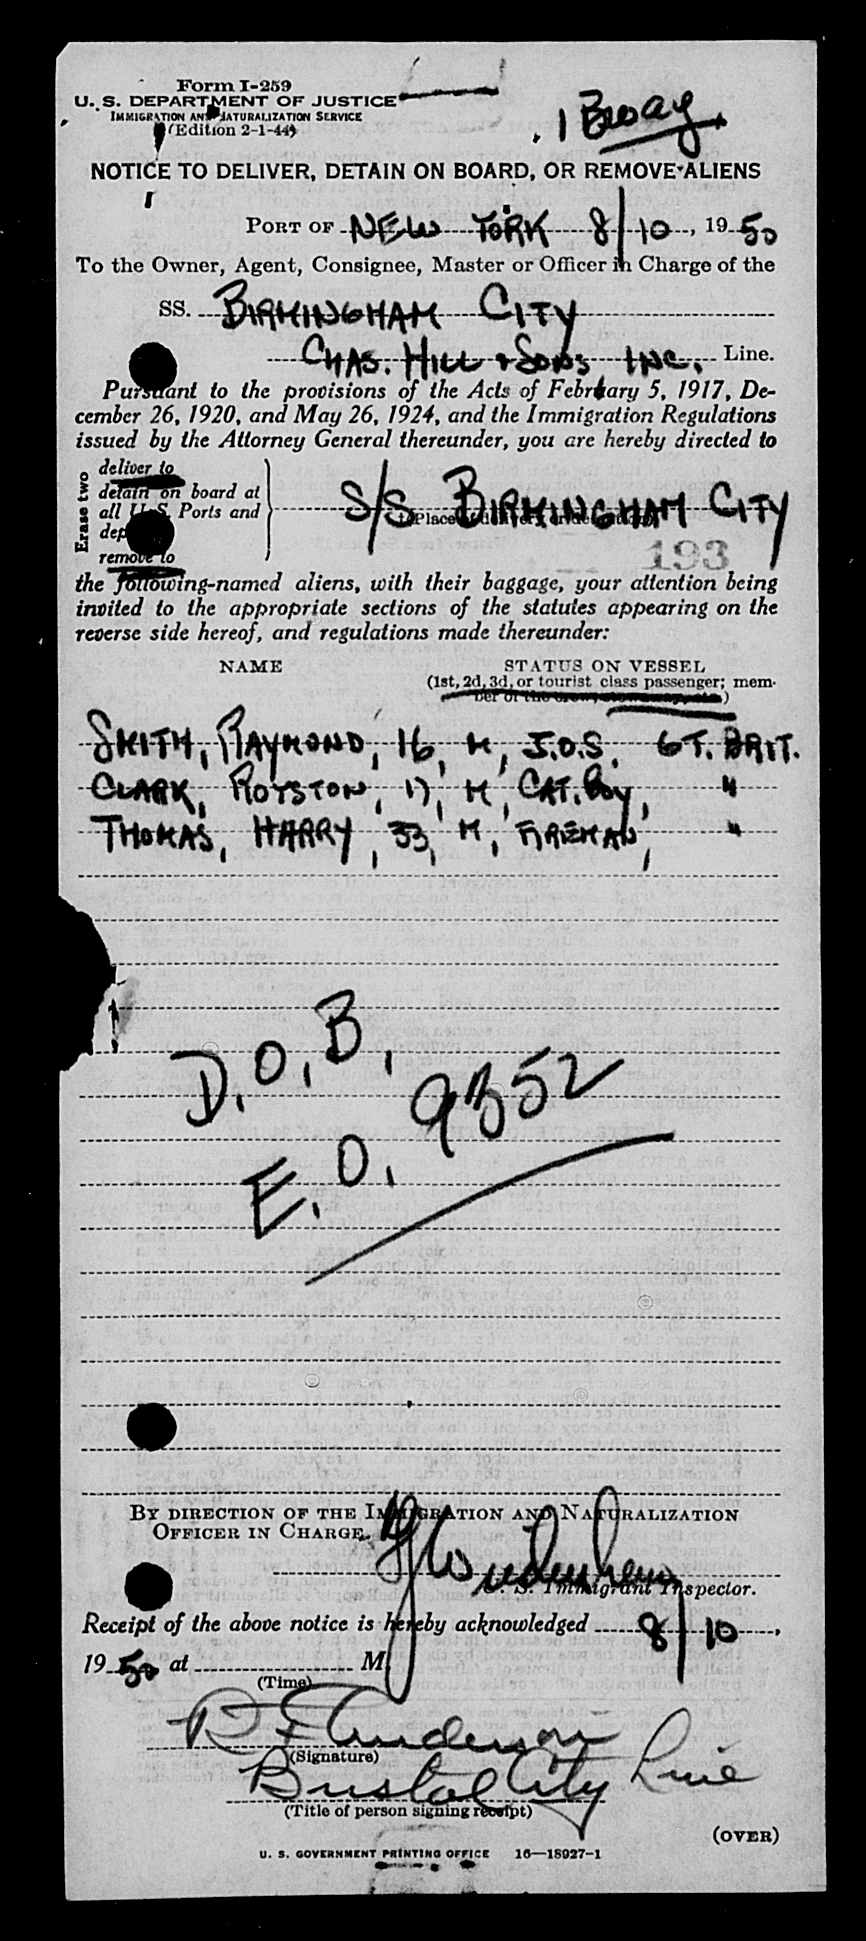 Form I-259
U. S. DEPARTMENT OF JUSTICE
IMMIGRATION AND NATURALIZATION SERVICE
(Edition 2-1-44)
1 Bway
NOTICE TO DELIVER, DETAIN ON BOARD, OR REMOVE ALIENS
PORT OF NEW YORK 8/10, 1950
To the Owner, Agent, Consignee, Master or Officer in Charge of the
SS. BIRMINGHAM CITY
CHAS. HILL & SONS INC. Line.
Pursuant to the provisions of the Acts of February 5, 1917, De-
cember 26, 1920, and May 26, 1924, and the Immigration Regulations
issued by the Attorney General thereunder, you are hereby directed to
Erase two
deliver to
detain on board at
all U. S. Ports and
dep
remove to
S/S BIRMINGHAM CITY
(Place of delivery or detention)
193
the following-named aliens, with their baggage, your attention being
invited to the appropriate sections of the statutes appearing on the
reverse side hereof, and regulations made thereunder:
NAME STATUS ON VESSEL
(1st, 2d, 3d, or tourist class passenger; mem-
ber of the crew,
SMITH, RAYMOND, 16, M, J.O.S, GT. BRIT.
CLARK, ROYSTON, 17, M, CAT. BOY, "
THOMAS, HARRY, 33, M, FIREMAN, "
D.O.B.
E.O. 9352
BY DIRECTION OF THE IMMIGRATION AND NATURALIZATION
OFFICER IN CHARGE.
U. S. Immigrant Inspector.
Receipt of the above notice is hereby acknowledged 8/10,
1950 at M
(Time)
R F Anderson
(Signature)
Bristol City Line
(Title of person signing receipt)
(OVER)
U. S. GOVERNMENT PRINTING OFFICE 16—18927-1